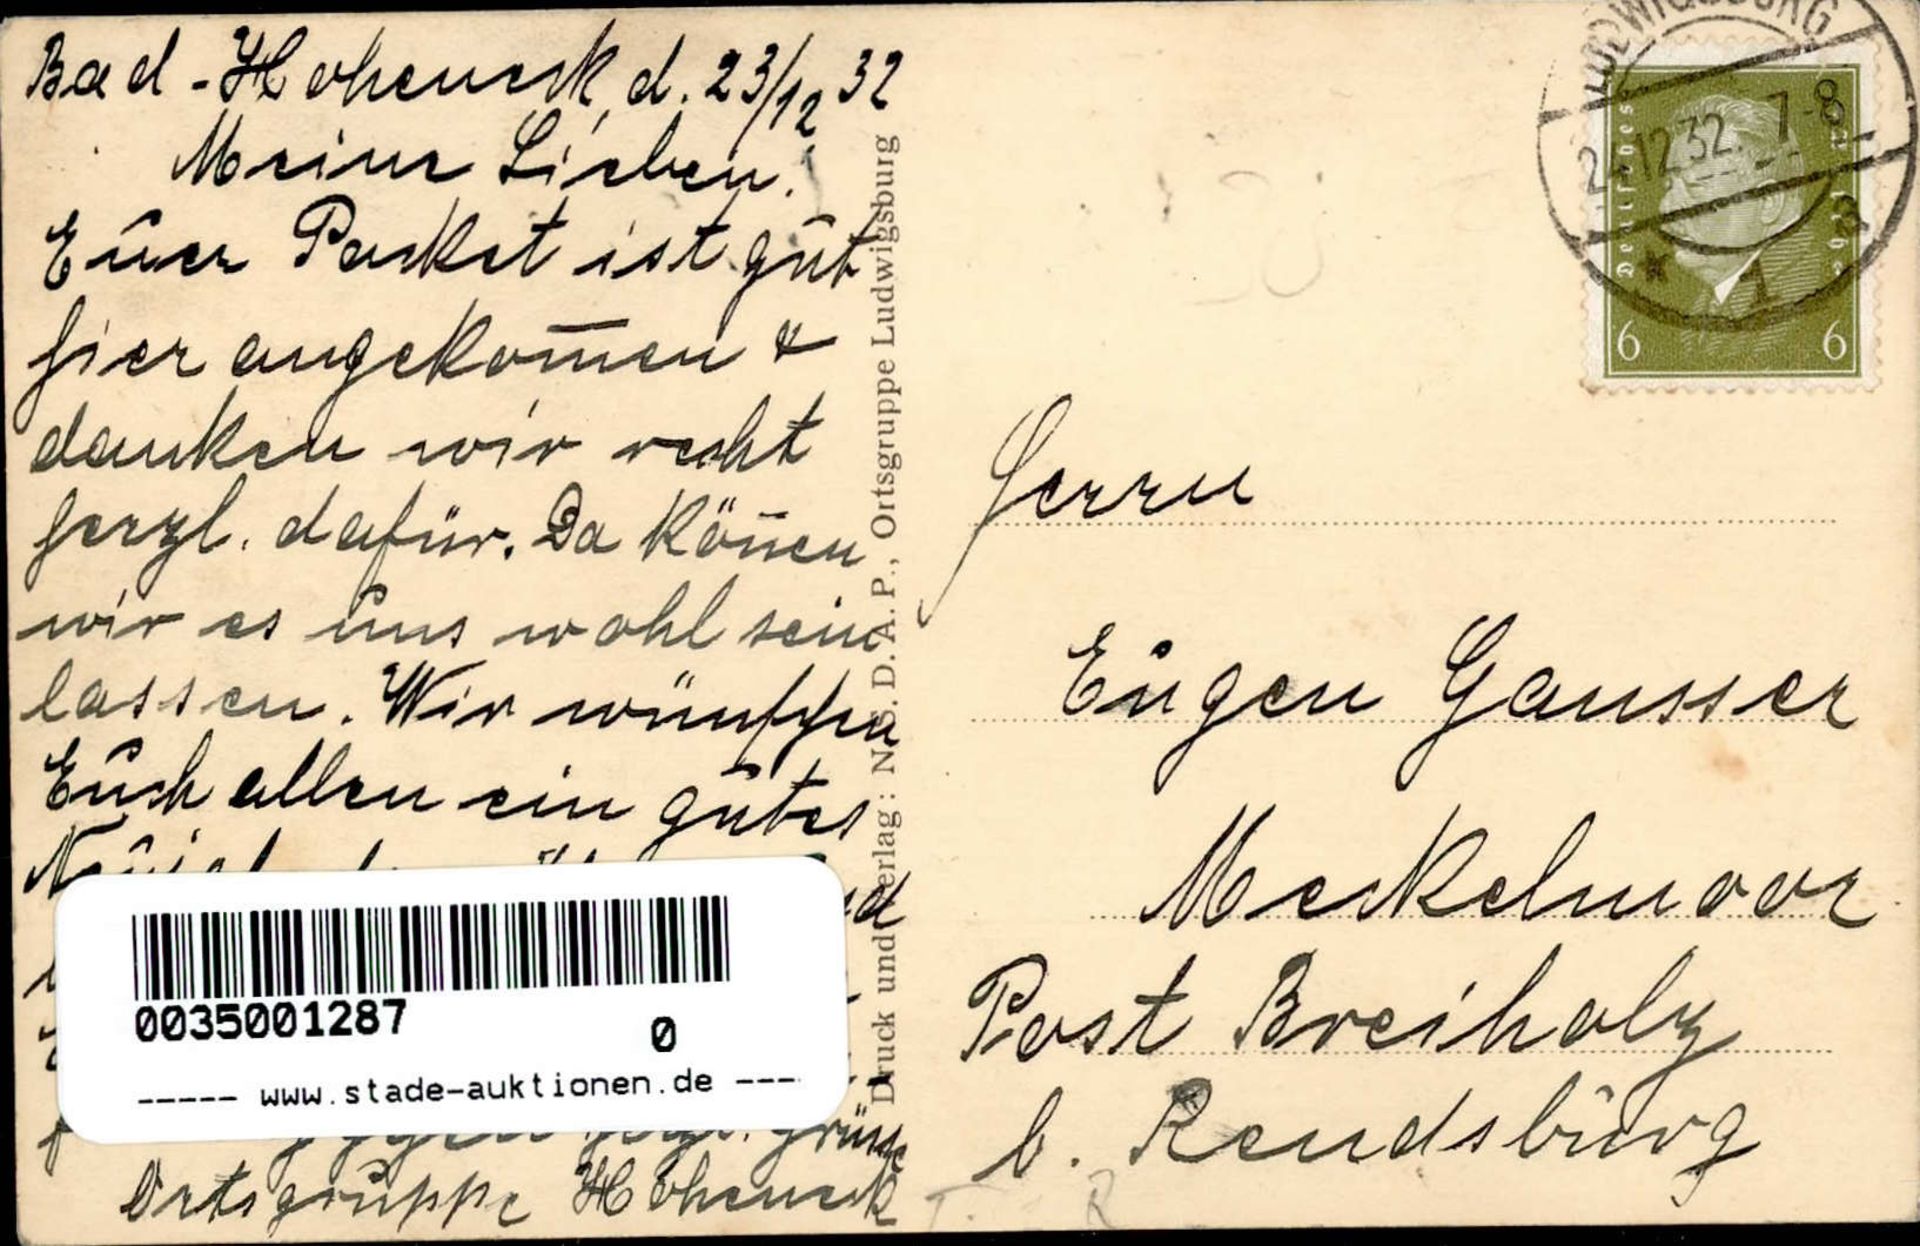 Bad-Hoheneck, d. 23/12 32
Meine Lieben.
Euer Packet ist gut
hier angekom̅en &
danken wir recht
herzl. dafür. Da kön̅en
wir es uns wohl sein
lassen. Wir wünschen
Euch allen ein gutes
Grüsse
Ortsgruppe Hoheneck
0035001287
0
----- www.stade-auktionen.de ----
Druck und Verlag: N.S.D.A.P., Ortsgruppe Ludwigsburg
LUDWIGSBURG
24.12.32. 7-8
* 1
Deutsches Reich
6 6
Herrn
Eugen Gausser
Meckelmoor
Post Breiholz
b. Rendsburg